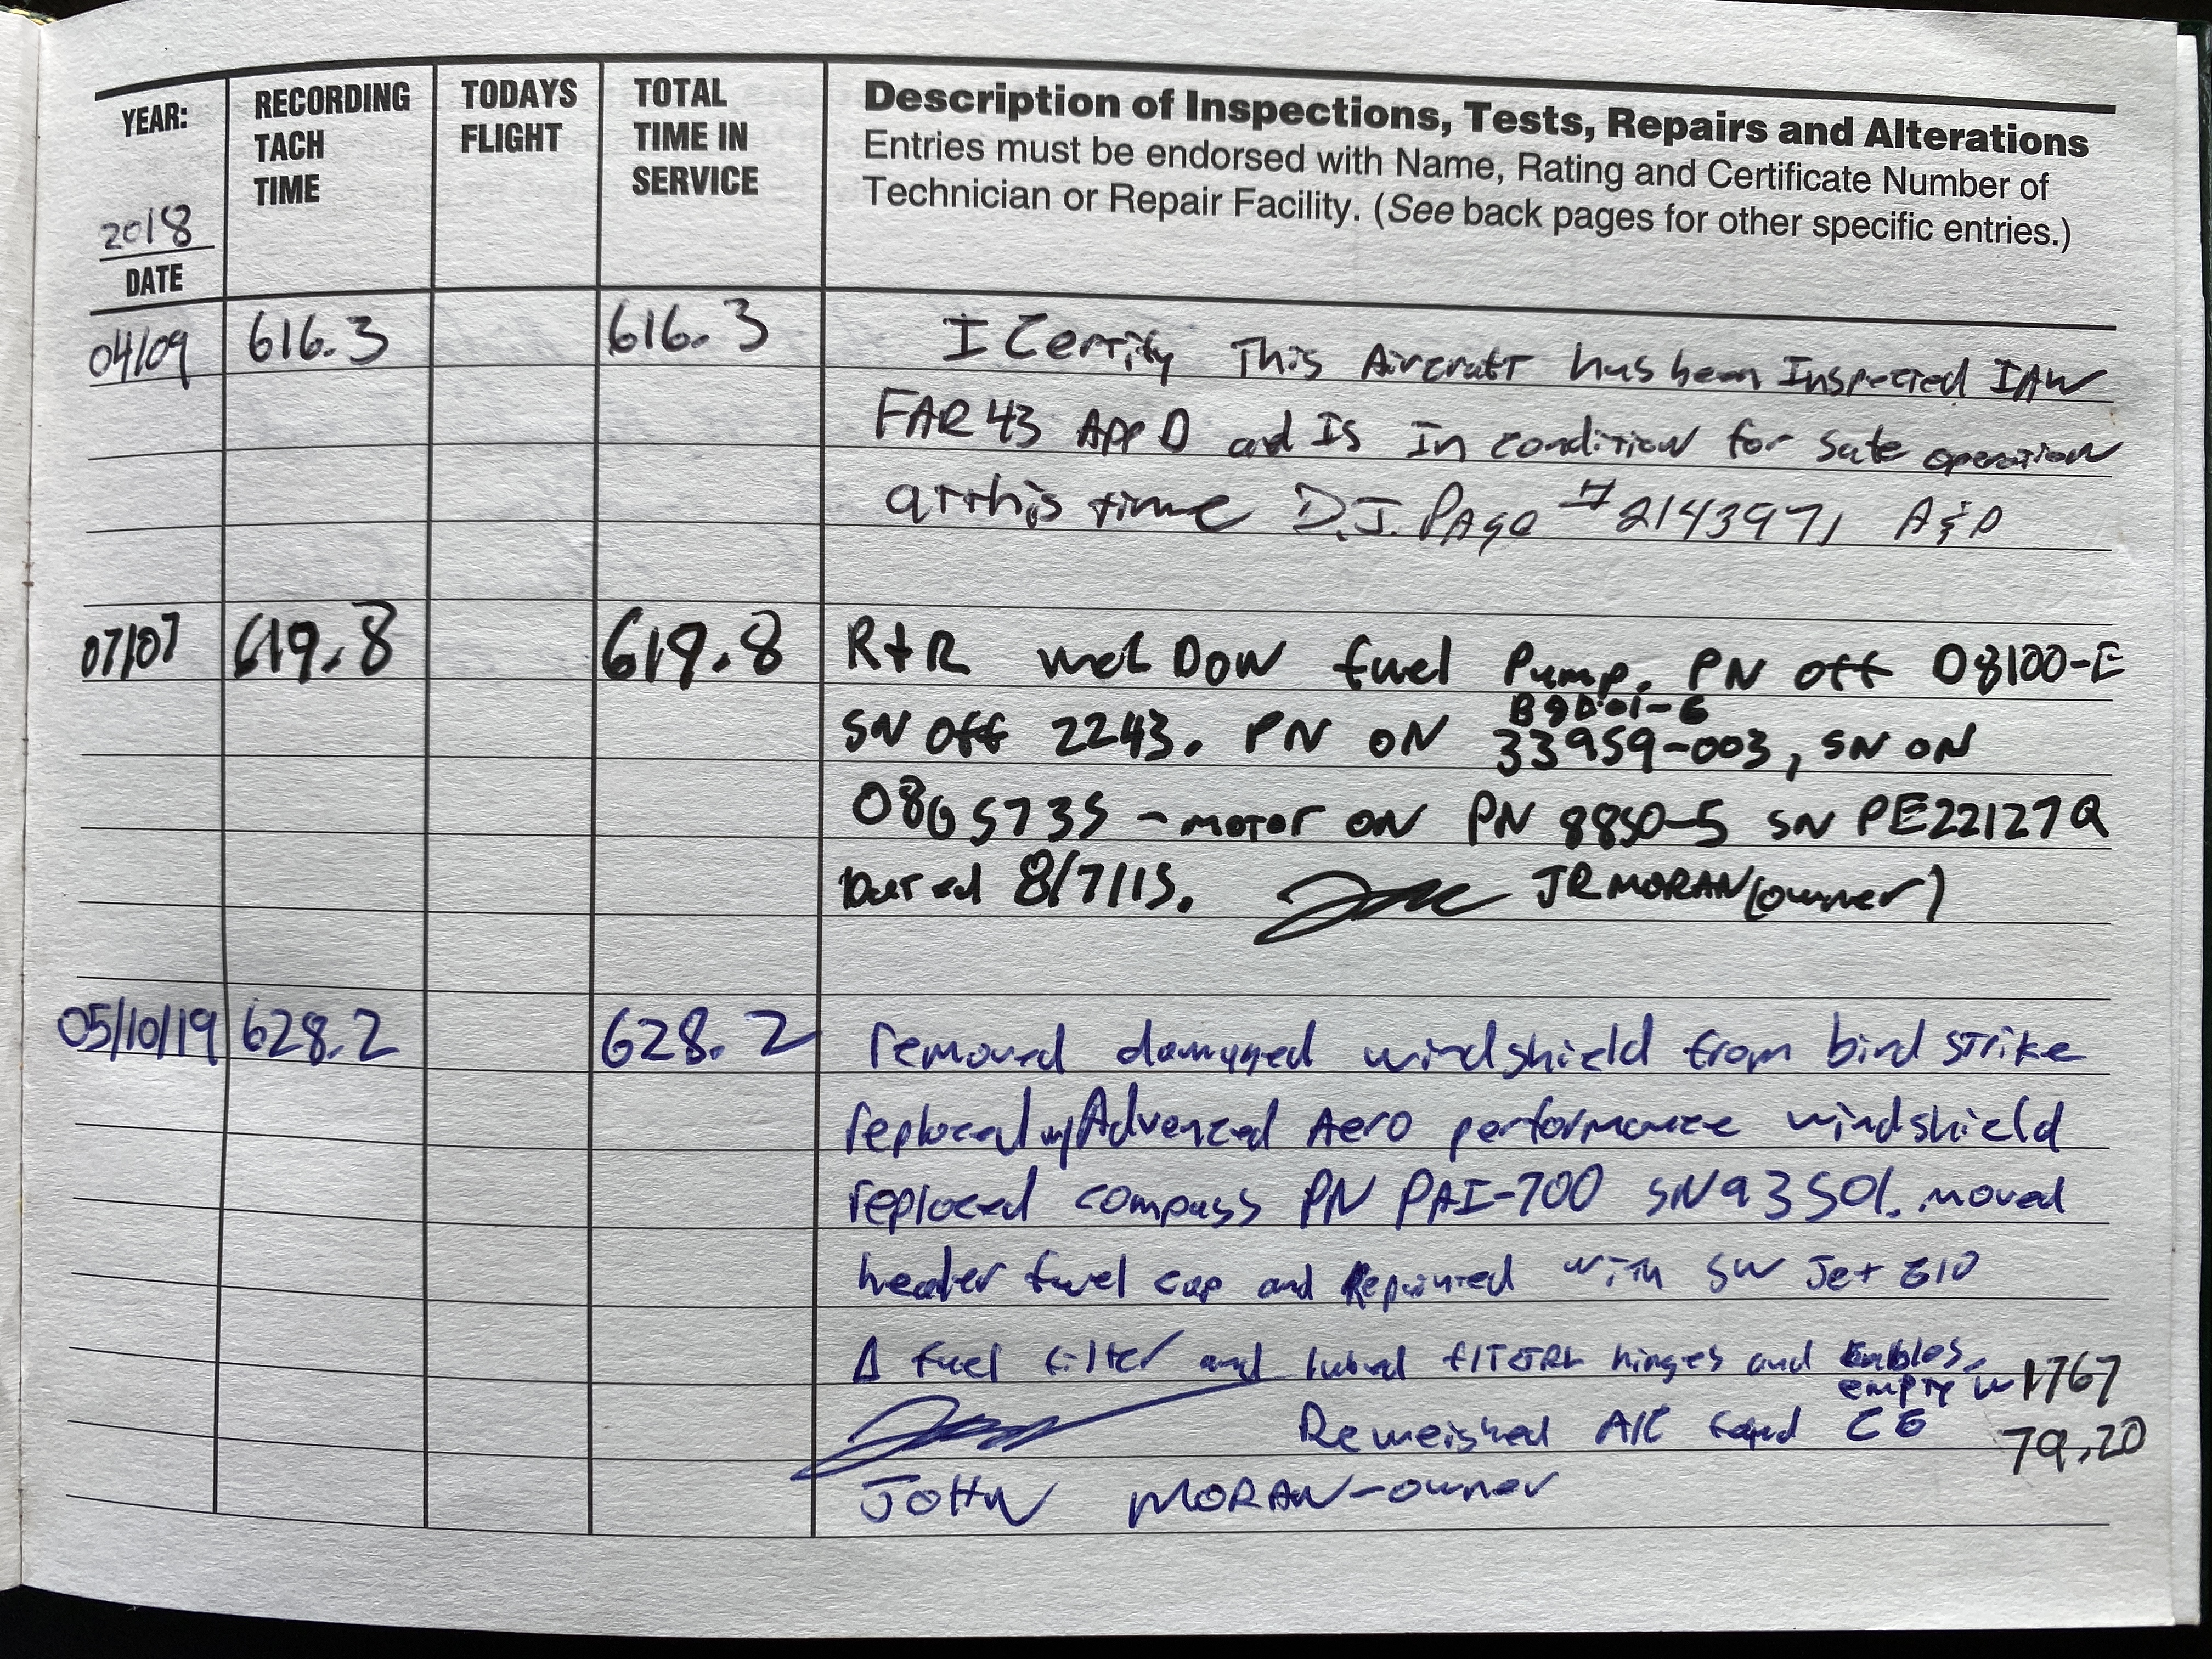 YEAR:
2018
DATE
RECORDING
TACH
TIME
TODAYS
FLIGHT
TOTAL
TIME IN
SERVICE
Description of Inspections, Tests, Repairs and Alterations
Entries must be endorsed with Name, Rating and Certificate Number of
Technician or Repair Facility. (See back pages for other specific entries.)
04/09 616.3 616.3 I Certify This Aircraft has been Inspected IAW
FAR 43 App D and Is In condition for safe operation
at this time D.J. Page #2143971 A&P
07/07 619.8 619.8 R+R Weldon fuel Pump. PN off D8100-E
SN off 2243. PN ON 33959-003, SN ON
B9D01-6
08G5735 - motor ON PN 8850-5 SN PE22127Q
Dated 8/7/15. JR MORAN (owner)
05/10/19 628.2 628.2 removed damaged windshield from bird strike
replaced w/ Advanced Aero performance windshield
replaced compass PN PAI-700 SN 93501. moved
header fuel cap and Repainted with SW Jet
Δ fuel filter and lubed hinges and
empty w 1767
Reweighed A/C CG 79.20
JOHN MORAN - owner